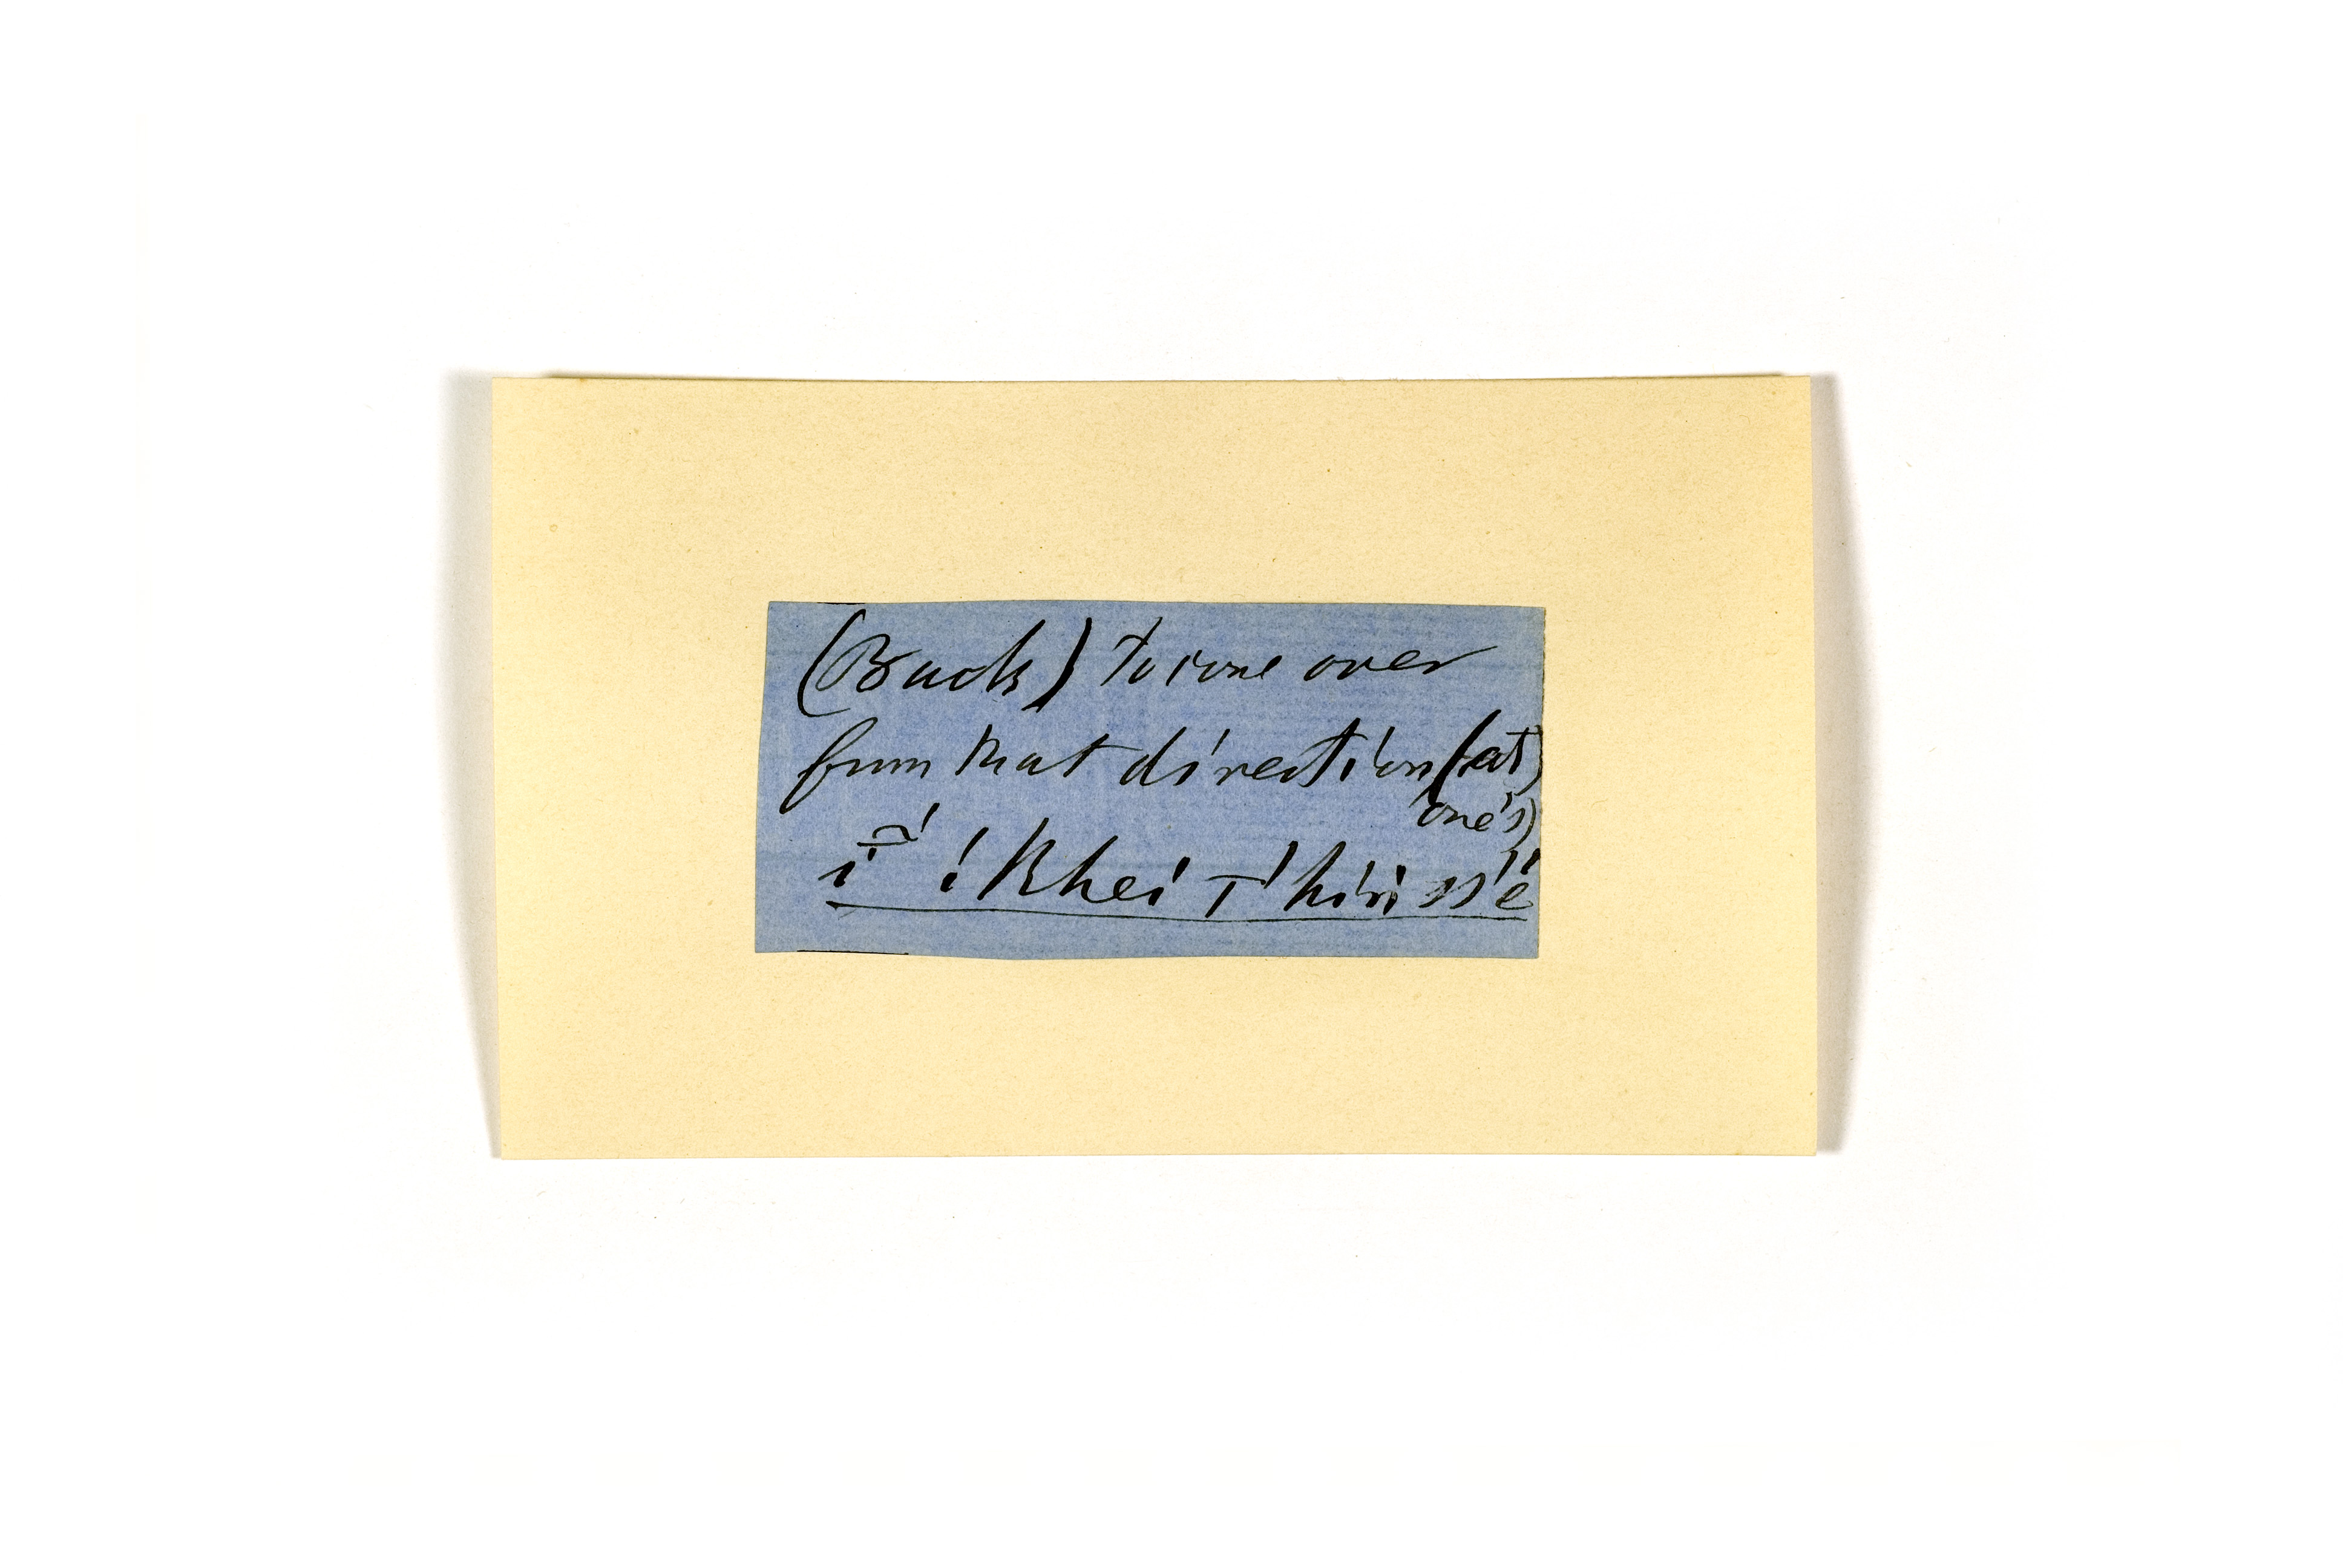 (Back) to come over
from that direction (at)
one's)
!khei